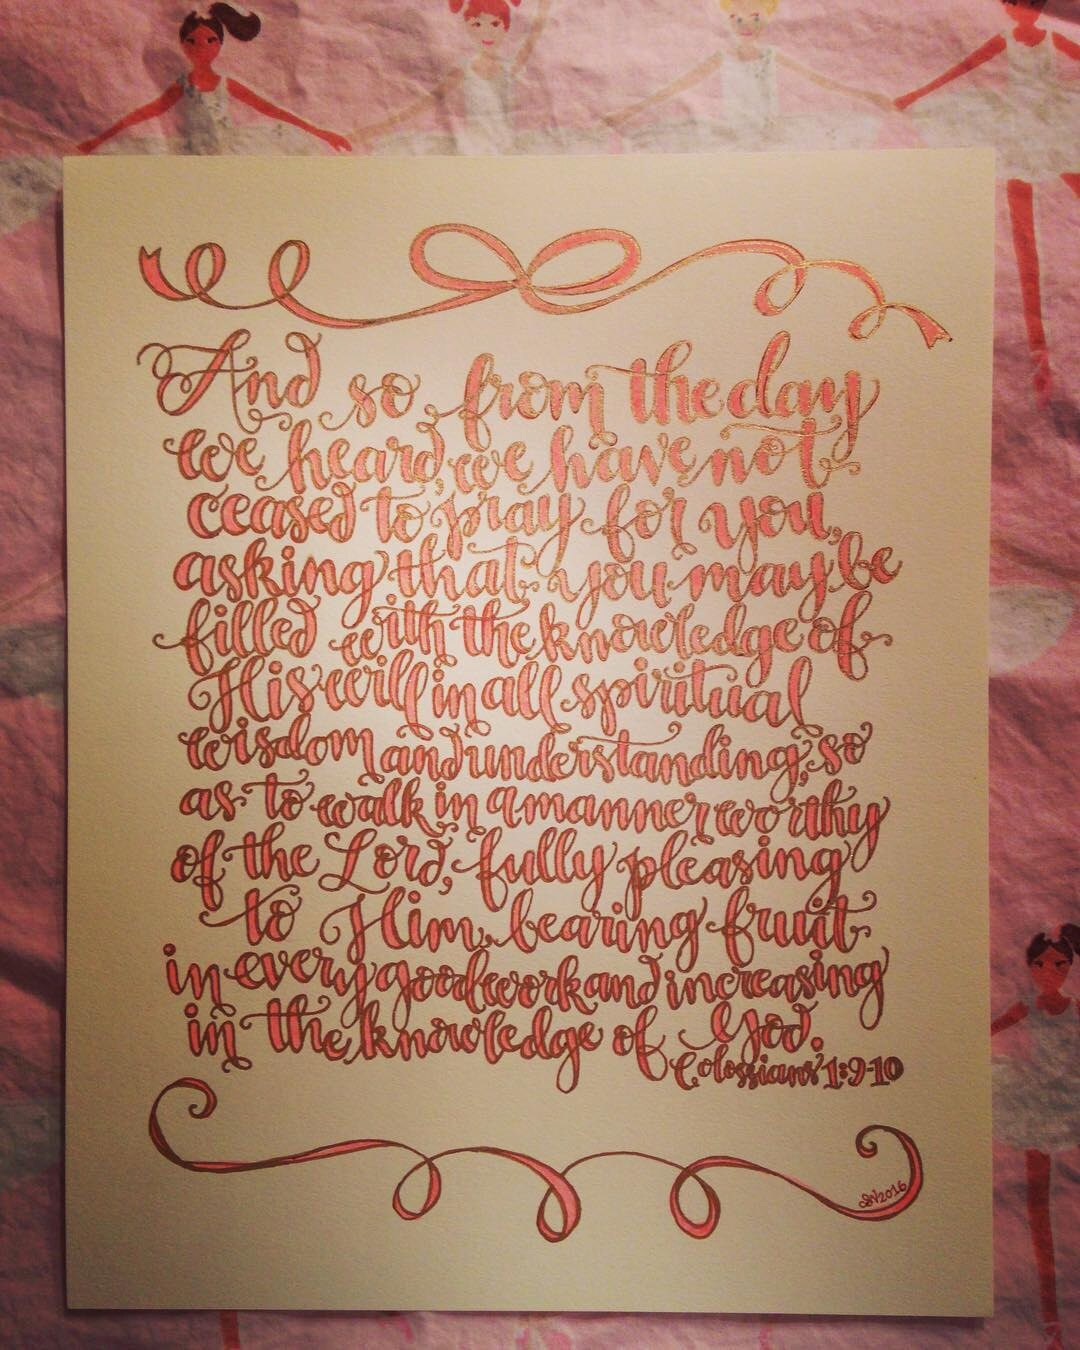 And so, from the day
we heard, we have not
ceased to pray for you,
asking that you may be
filled with the knowledge of
His will in all spiritual
wisdom and understanding, so
as to walk in a manner worthy
of the Lord, fully pleasing
to Him, bearing fruit
in every good work and increasing
in the knowledge of God.
Colossians 1:9-10
SV2016